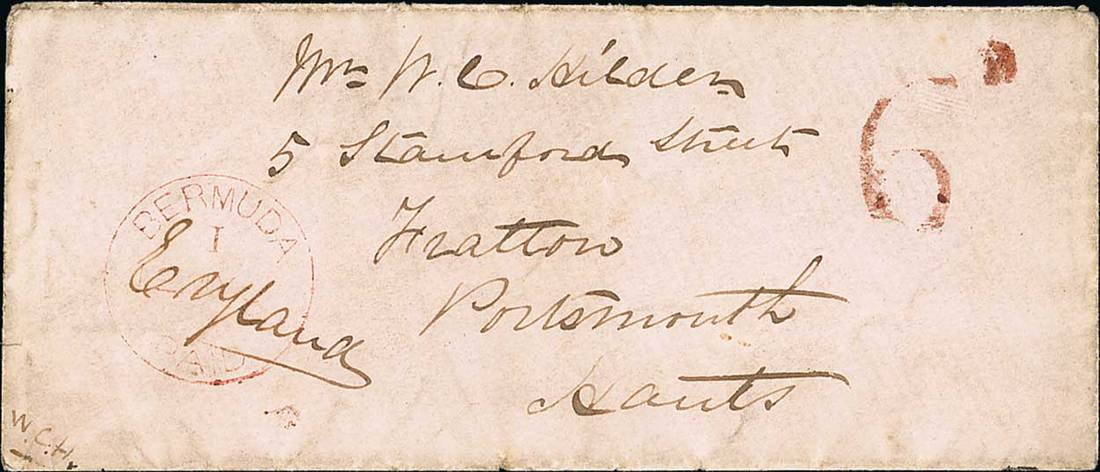 Mrs W. C. Hilder
5 Stamford Street
Fratton
Portsmouth
Hants
England
BERMUDA
1
PAID
6d
W.C.H.